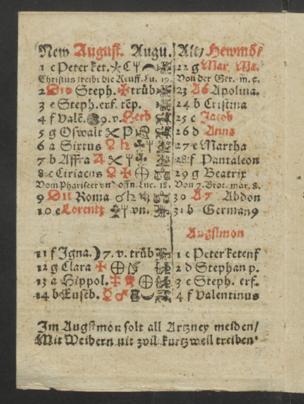 New August. Augu. Alt/ Hewmo
1 c Peter ket. 22 g Mar. Ma.
Christus treibt die Keuff. Lu. 19. Von der Ger. m. 5.
2 D10 Steph. trüb 23 A6 Apolina.
3 e Steph. erf. 24 b Cristina
4 f 9. v. Herb 25 c Jacob
5 g Oswalt 26 d Anna
6 a Sixtus 27 e Martha
7 b Affra 28 f Pantaleon
8 c Ciriacus 29 g Beatrix
Vom Phariseer vnd offn. Luc. 18. Von 7. Brot. mar. 8.
9 D11 Roma 30 A7 Abdon
10 e Lorentz vn. 31 b German9
Augstmon
11 f Igna. 7. v. trüb 1 c Peter ketenf
12 g Clara 2 d Stephan p.
13 a Hippol. 3 e Steph. erf.
14 b Euseb. 4 f Valentinus
Im Augstmon solt all Artzney meiden/
Mit Weibern nit zvil kurtzweil treiben